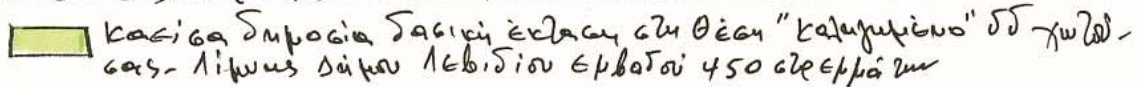 καείσα δημοσία δασική έκταση στη θέση "καληγωμένο" δδ χωτού-
σας- Λίμνης Δήμου Λεβιδίου εμβαδού 450 στρεμμάτων